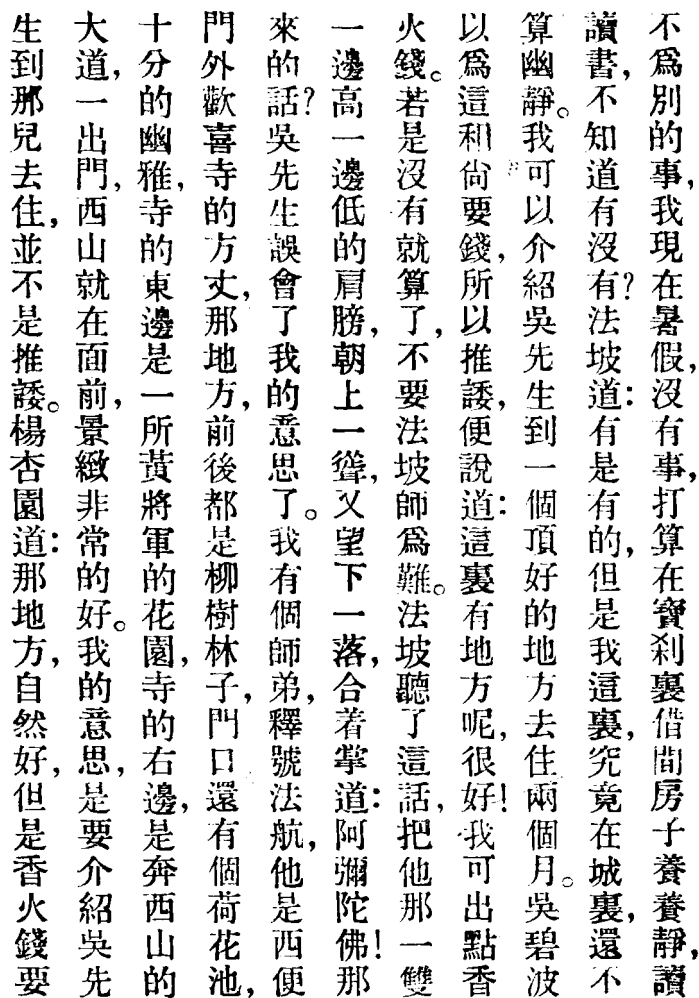 不爲別的事，我現在暑假，沒有事，打算在寶刹裏借間房子養養靜，讀
讀書，不知道有沒有？法坡道：有是有的，但是我這裏，究竟在城裏，還不
算幽靜。我可以介紹吳先生到一個頂好的地方去住兩個月。吳碧波
以爲這和尙要錢，所以推諉，便說道：這裏有地方呢，很好！我可出點香
火錢。若是沒有就算了，不要法坡師爲難。法坡聽了這話，把他那一雙
一邊高一邊低的肩膀，朝上一聳，又望下一落，合着掌道：阿彌陀佛！那
來的話？吳先生誤會了我的意思了。我有個師弟，釋號法航，他是西便
門外歡喜寺的方丈，那地方，前後都是柳樹林子，門口還有個荷花池，
十分的幽雅，寺的東邊是一所黃將軍的花園，寺的右邊，是奔西山的
大道，一出門，西山就在面前，景緻非常的好。我的意思，是要介紹吳先
生到那兒去住，並不是推諉。楊杏園道：那地方，自然好，但是香火錢要